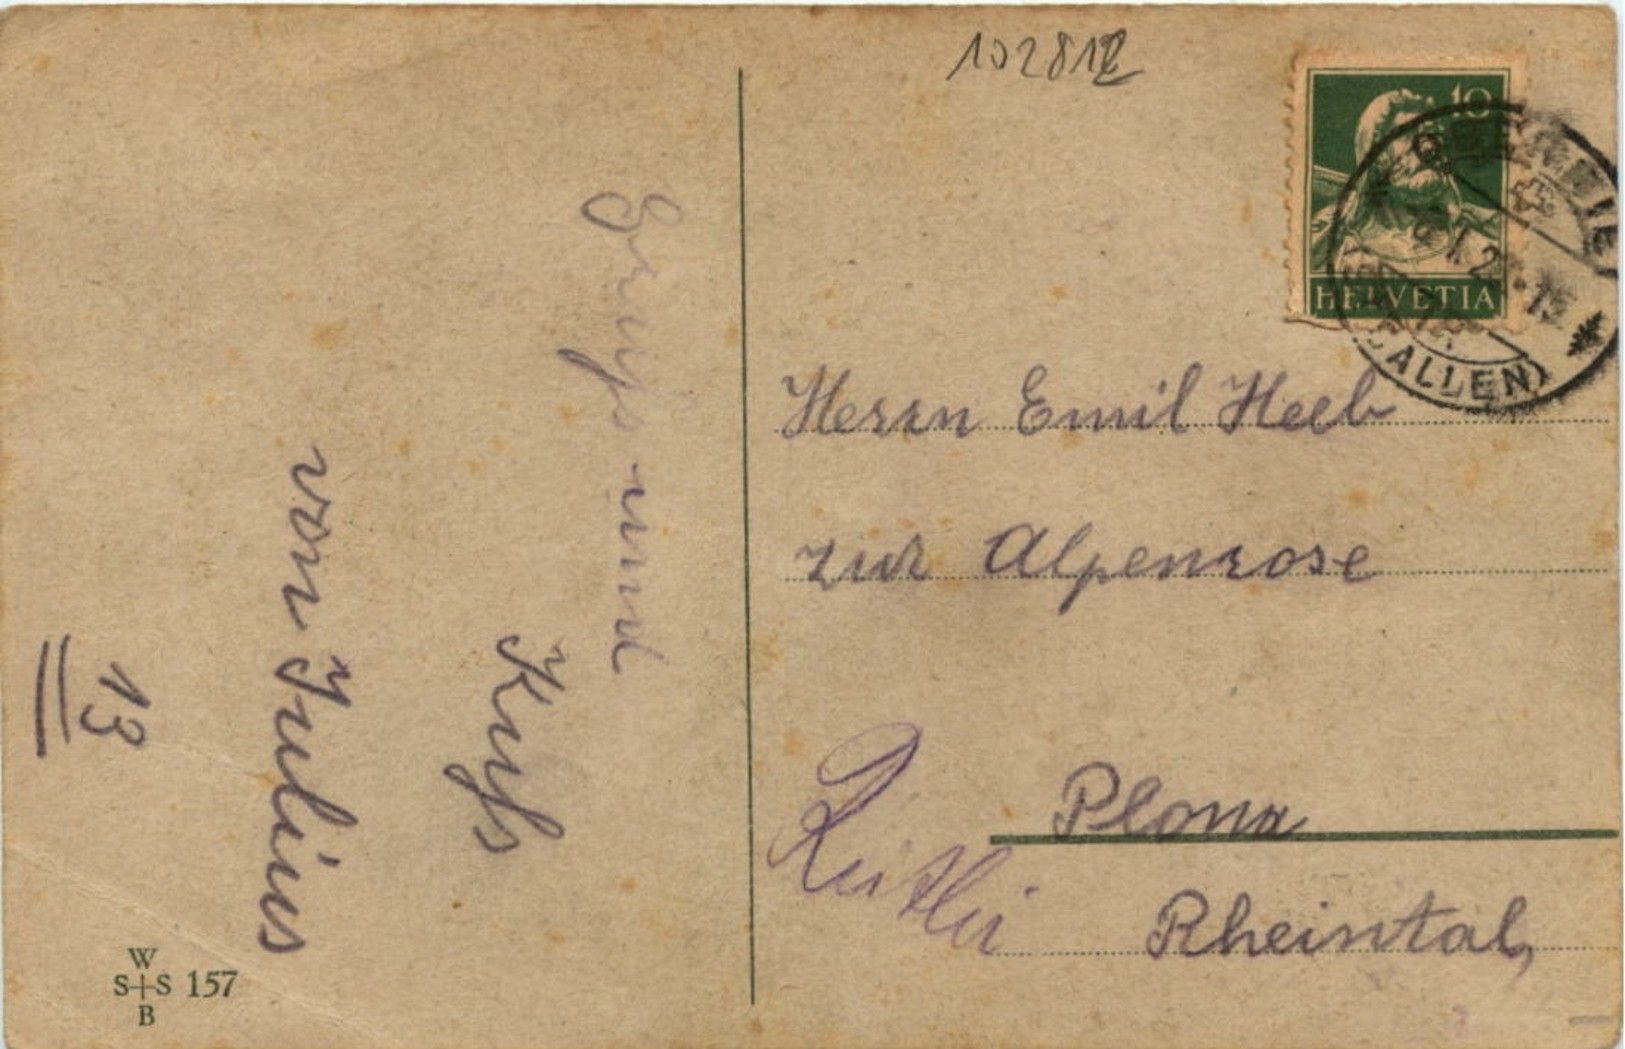 Gruss und
Kuss
von Julius
13
W
S+S 157
B
10
HELVETIA
GALLEN)
Herrn Emil Heeb
zur Alpenrose
Plona
Rheintal,